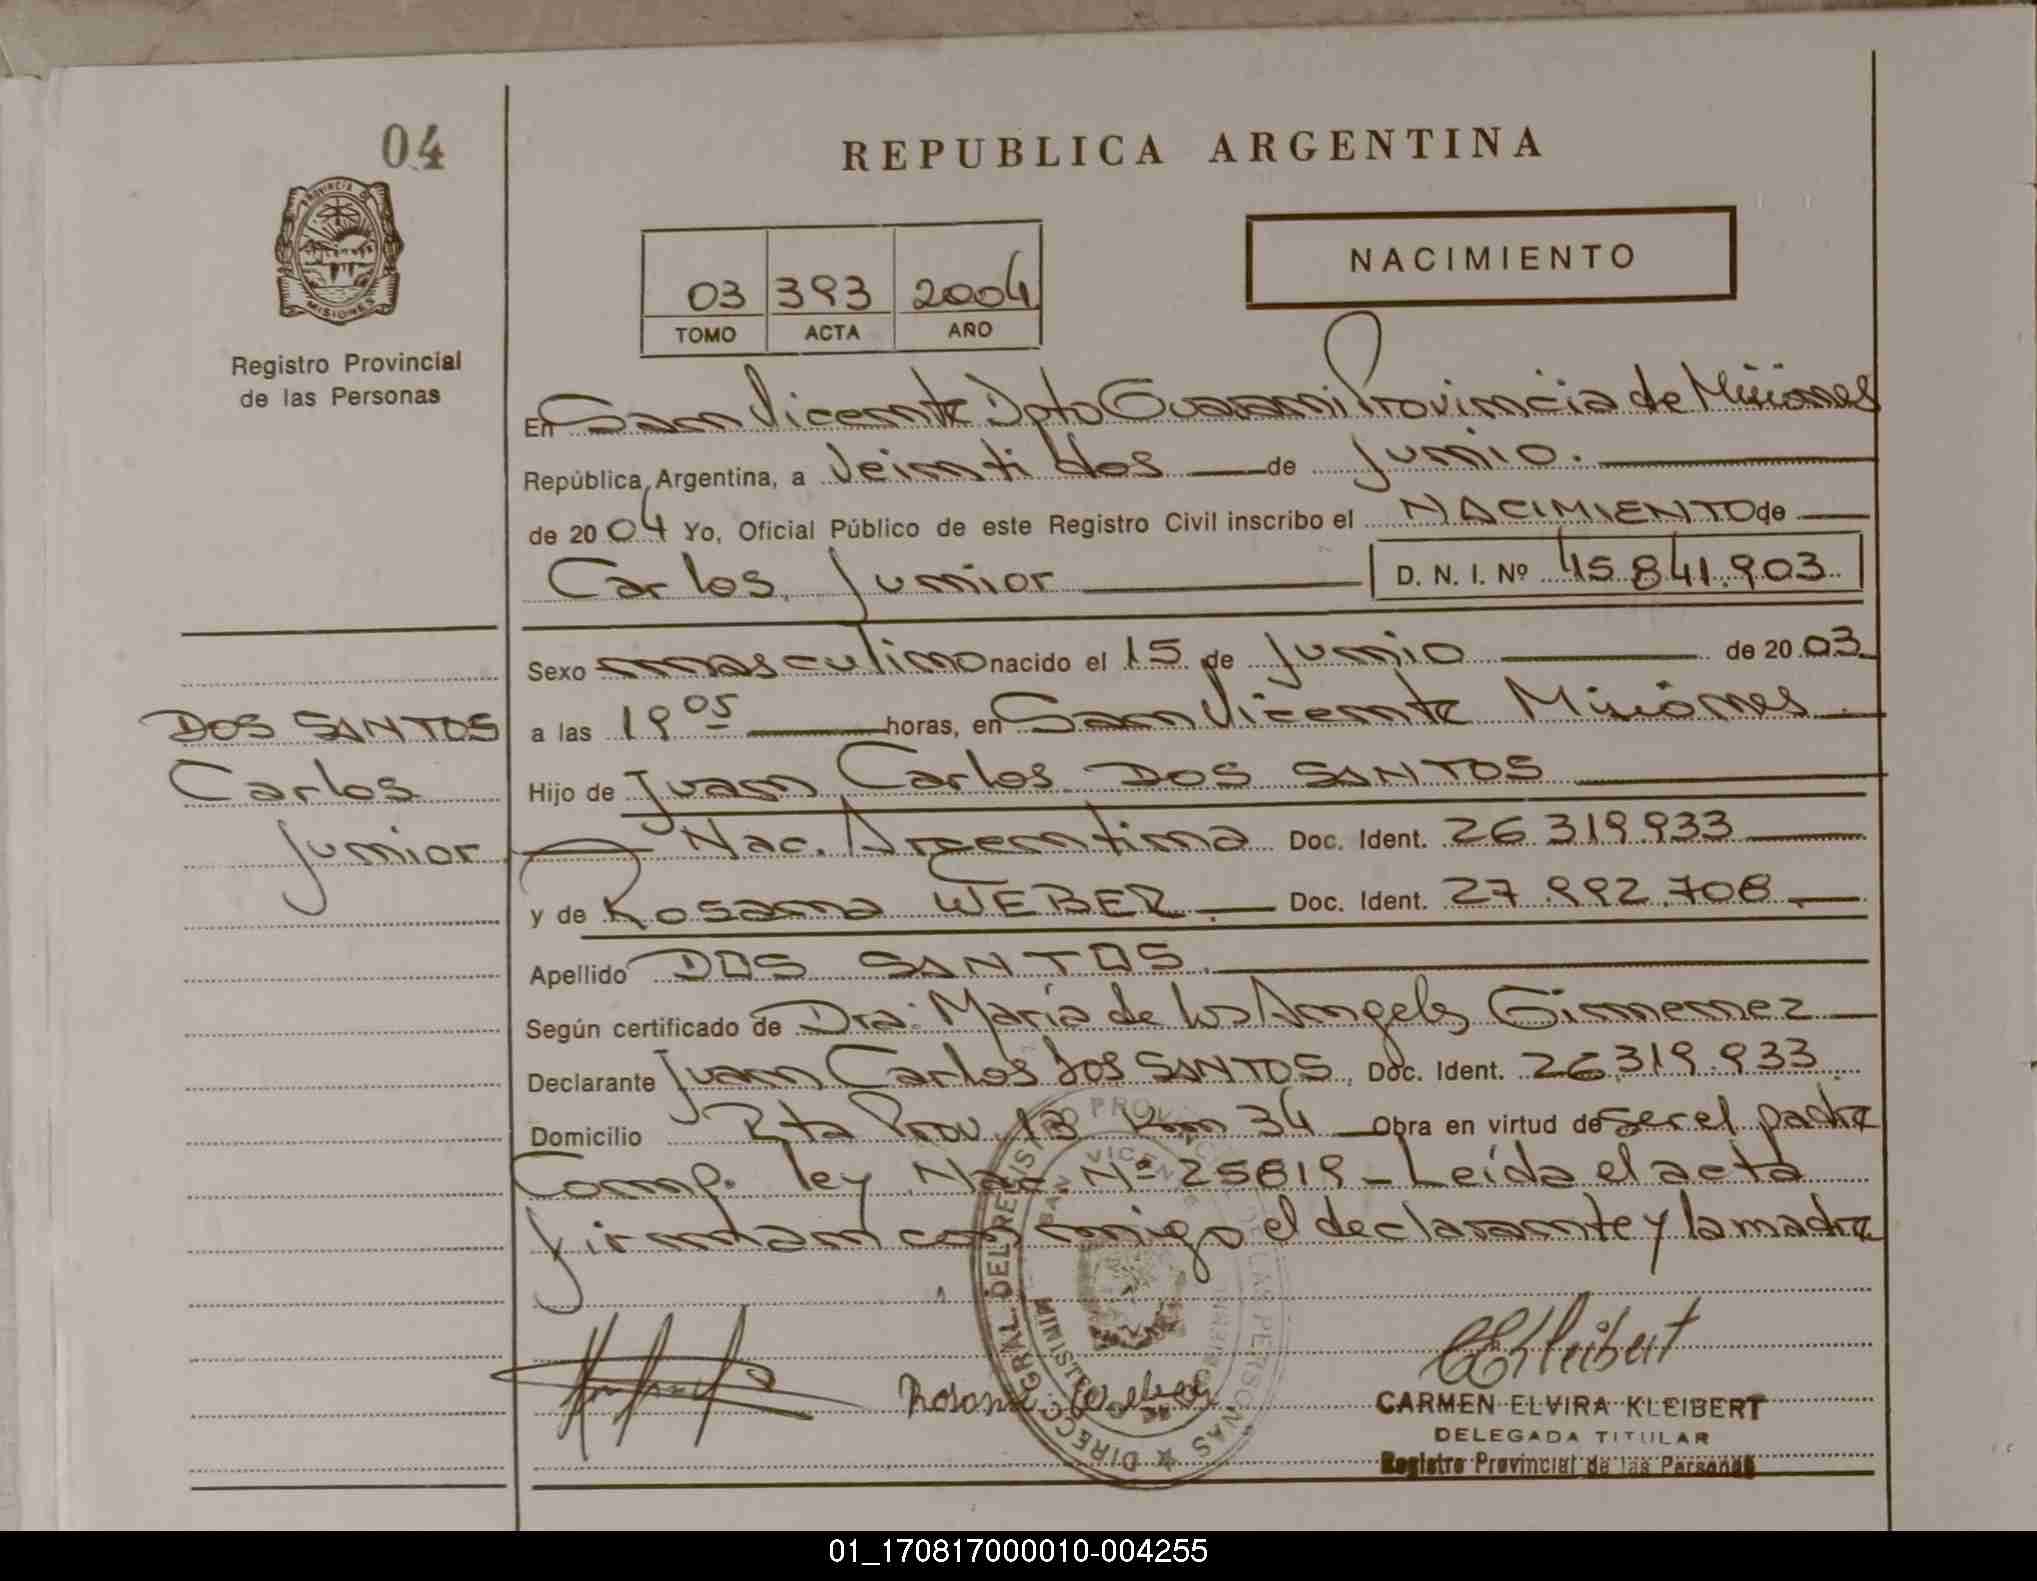 04
PROVINCIA DE
MISIONES
Registro Provincial
de las Personas
REPUBLICA ARGENTINA
03 393 2004
TOMO ACTA AÑO
NACIMIENTO
En San Vicente Dpto Guarani Provincia de Misiones
República Argentina, a Veinti dos de junio.
de 2004 Yo, Oficial Público de este Registro Civil inscribo el NACIMIENTO de
Carlos Junior D. N. I. Nº 45.841.903
Sexo masculino nacido el 15 de junio de 2003
a las 19 05 horas, en San Vicente Misiones
Hijo de Juan Carlos DOS SANTOS
Nac. Argentina Doc. Ident. 26.319.933
y de Rosana WEBER Doc. Ident. 27.992.708
Apellido DOS SANTOS
Según certificado de Dra: María de los Angeles Gimenez
Declarante Juan Carlos Dos SANTOS, Doc. Ident. 26.319.933
Domicilio Rta Prov. 13 Km 34 Obra en virtud de ser el padre
Comp. ley Nac. Nº 25819 - Leída el acta
firman conmigo el declarante y la madre
DOS SANTOS
Carlos
Junior
Rosana Weber
CEKleibert
CARMEN ELVIRA KLEIBERT
DELEGADA TITULAR
Registro Provincial de las Personas
DIRECC. GRAL. DEL REGISTRO PROVINCIAL DE LAS PERSONAS
SAN VICENTE
01_170817000010-004255